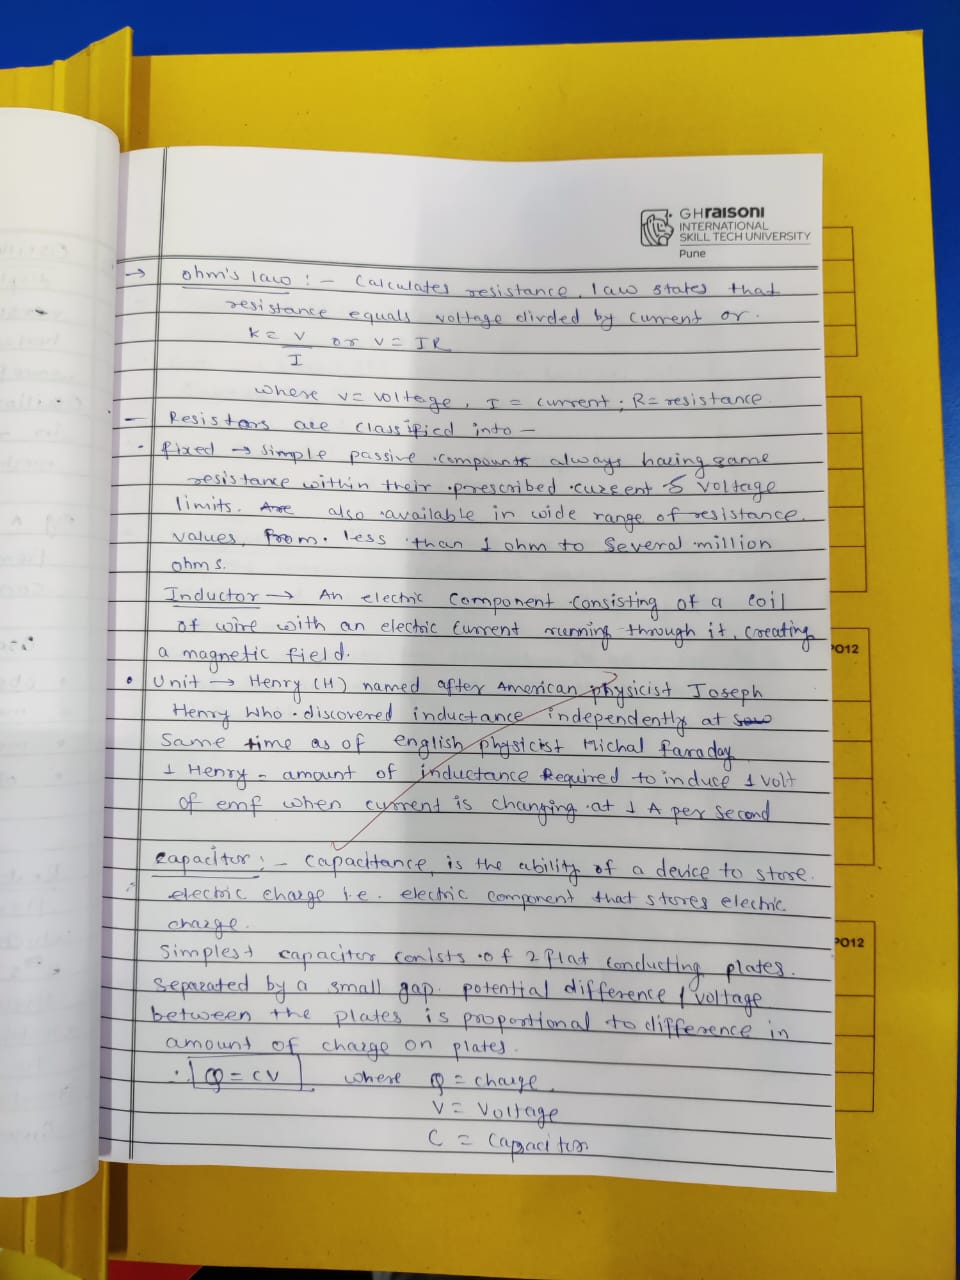 GHraisoni
INTERNATIONAL
SKILL TECH UNIVERSITY
Pune
→ ohm's law :- Calculates resistance. law states that
resistance equals voltage divided by current or.
R = V/I or V = IR
where V= voltage, I = current; R= resistance
- Resistors are classified into -
· fixed → simple passive compounts always having same
resistance within their prescribed cureent & voltage
limits. Are also available in wide range of resistance
values, from less than 1 ohm to several million
ohms.
Inductor → An electric component consisting of a coil
of wire with an electric current running through it, creating
a magnetic field.
• Unit → Henry (H) named after American physicist Joseph
Henry who discovered inductance independently at
same time as of english physicist Michal faraday
1 Henry - amount of inductance Required to induce 1 volt
of emf when current is changing at 1 A per second
Capacitor :- Capacitance, is the ability of a device to store
electric charge i.e. electric component that stores electric
charge.
Simplest capacitor conists of 2 flat conducting plates.
Separated by a small gap. potential difference / voltage
between the plates is proportional to difference in
amount of charge on plates.
∴ Q = CV where Q = charge.
V = Voltage
C = Capacitor
PO12
PO12